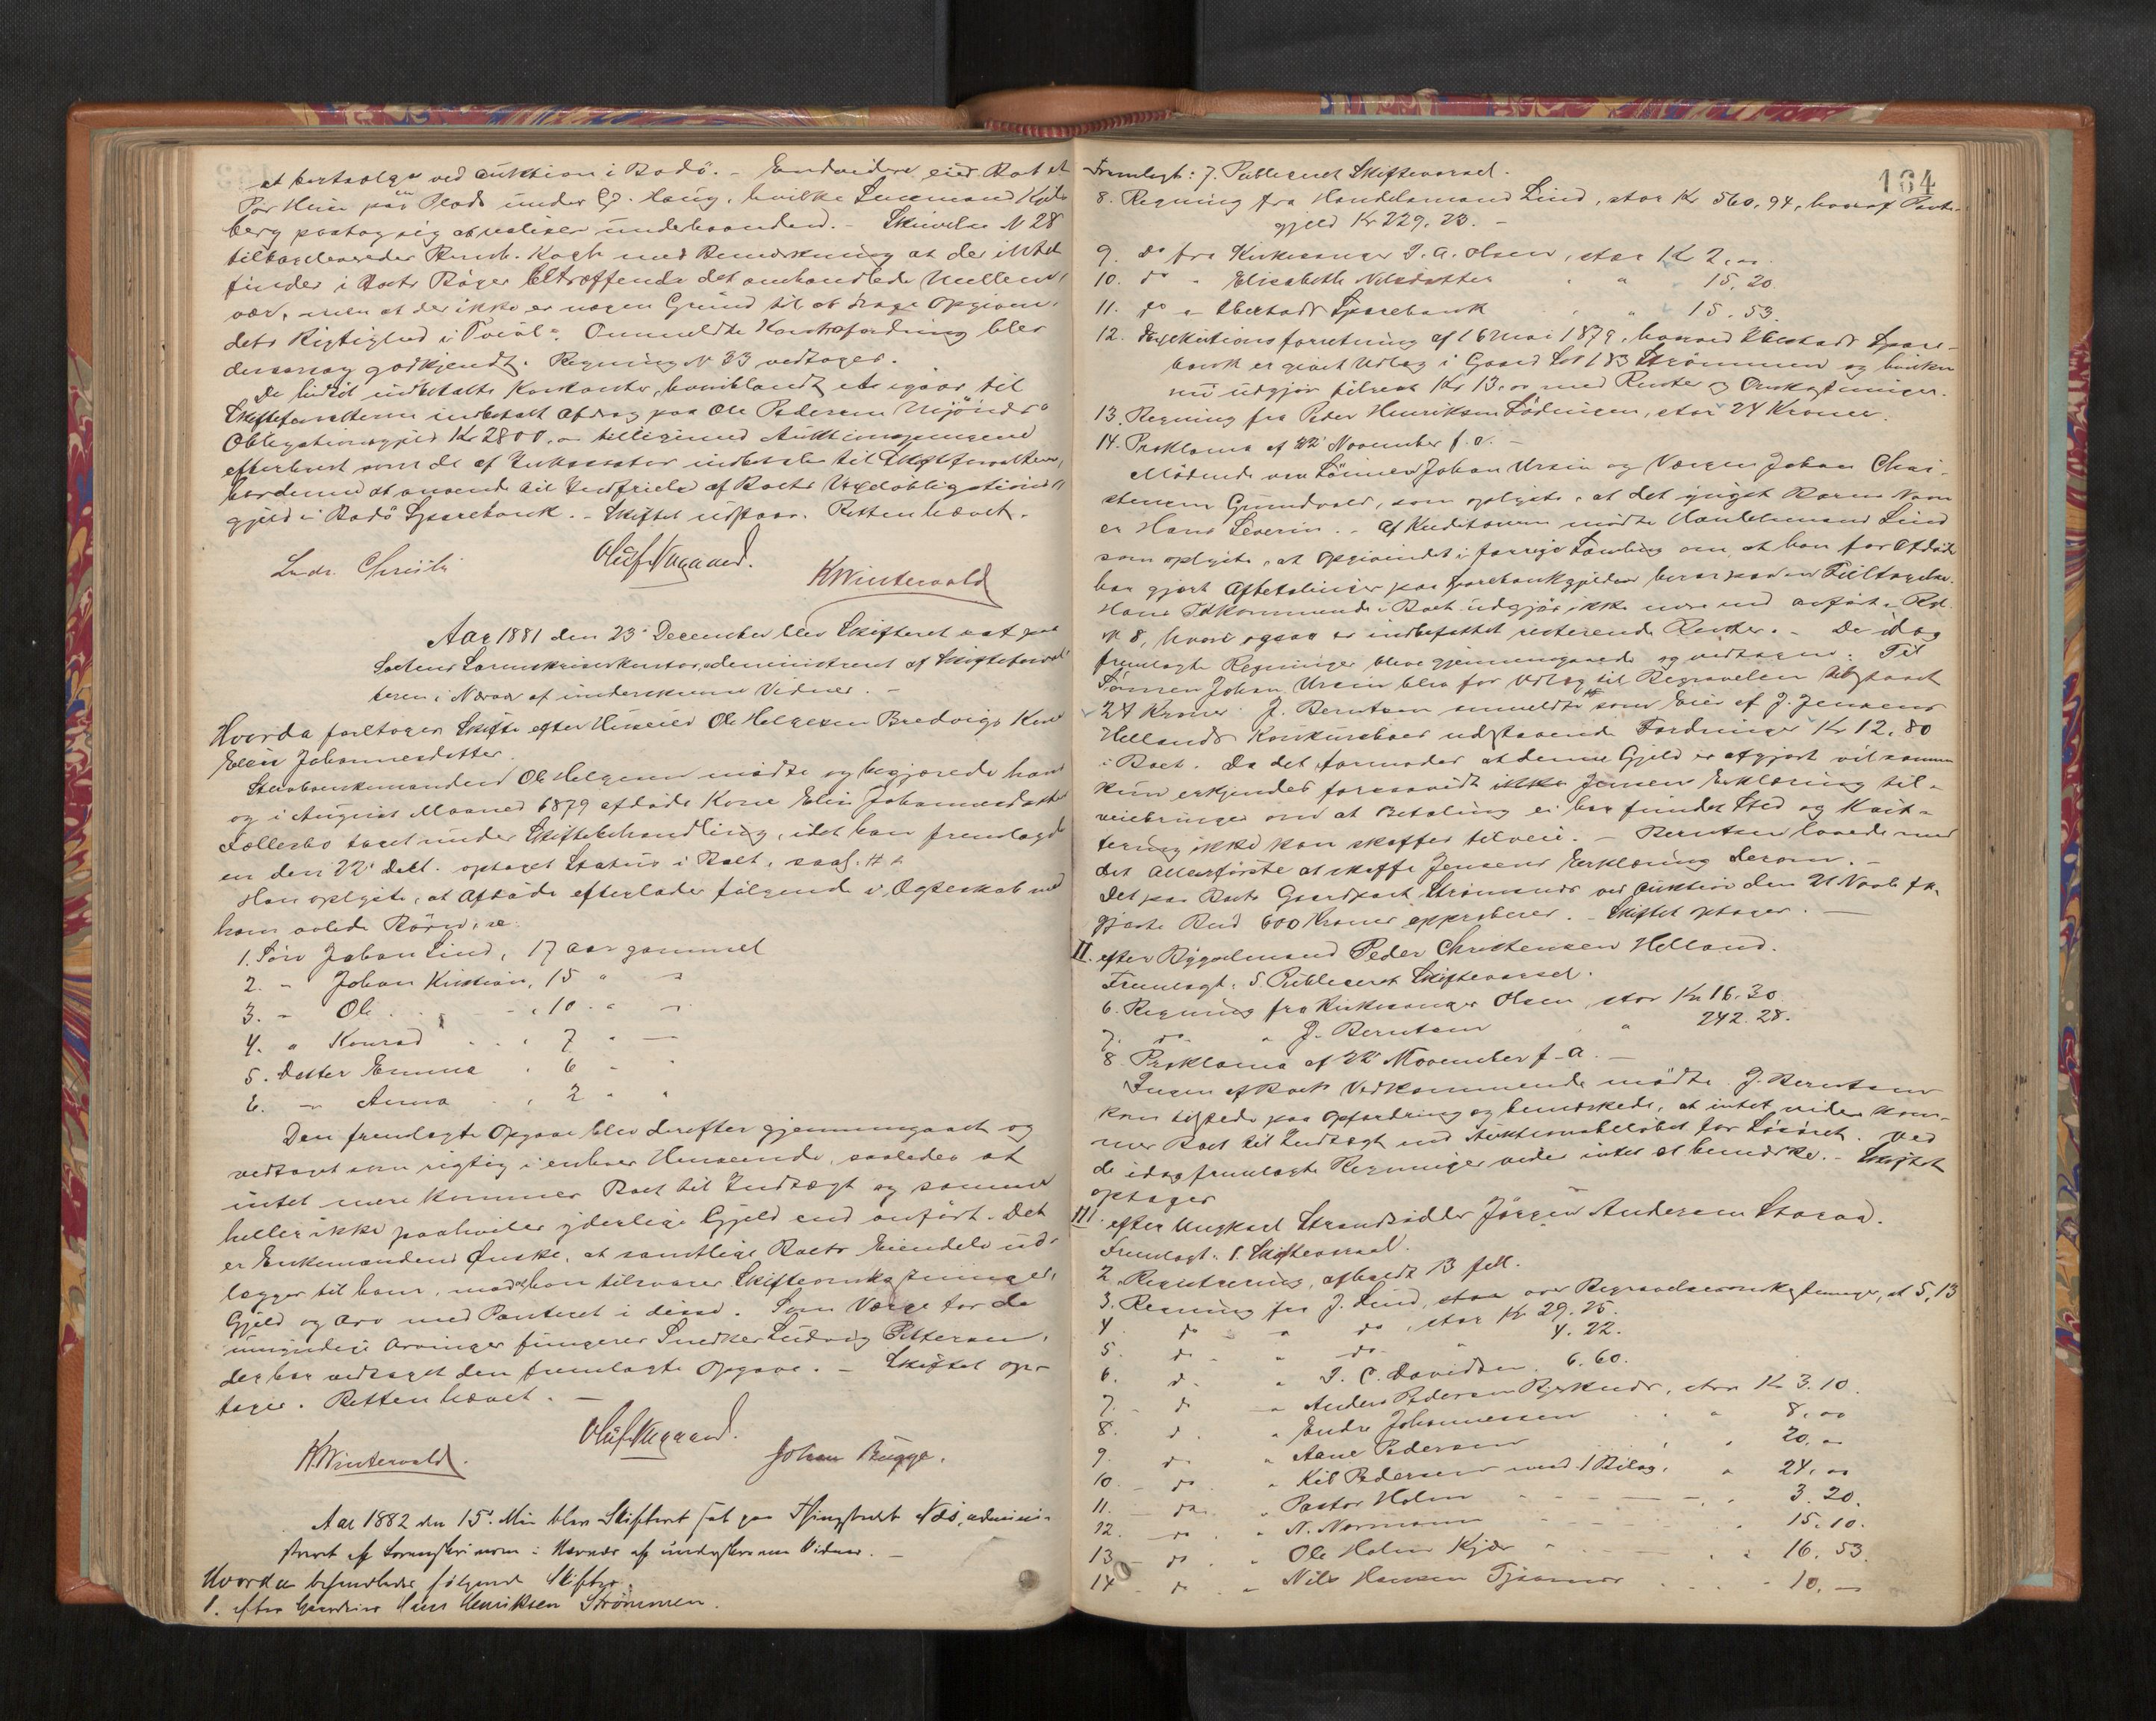 at bortsælges ved Auktion i Bodö. – Endvidere eier Boet et
Par Huse paa en Plads under Gd. Haug, hvilke Lensmand
berg paatog sig at realisere underhaanden. – Skrivelse N 28
tilbagelevereder med Bemærkning at der intet
findes i Boets Böger betræffende det omhandlede Mellemvæ-
rende, men at der ikke er nogen Grund til at drage Opgiven-
dets Rigtighed i Tvivl. Anmeldte Fordring blev
derefter godkjendt. Regning N 33 vedtoges.
De hidtil indbetalte Kontanter, hvoriblandt et igaar til
Skifteforvalteren indbetalt Afdrag paa Ole Pedersen
Obligationsgjeld Kr 2800, – tilligemed Auktionspengene
efterhvert som de af Inkassator indbetales til Skifteforvalteren,
bordenes at anvende til Indfrielse af Boets Vexelobligations-
gjeld i Bodö Sparebank. – Skiftet udstaar. Retten hævet.
Ludv. Christie Oluf Aagaard. K Winterwald
Aar 1881 den 23 December blev Skifteret sat paa
Saltens Sorenskriverkontor, administreret af Skifteforval-
teren i Nærvær af underskrevne Vidner. –
Hvorda foretoges Skifte efter Huseier Ole Helgesen Bredvigs Kone
Elen Johannesdatter.
Sterbøenkemanden Ole Helgesen mødte og begjærede hans
og i August Maaned 1879 afdöde Kone Elen Johannesdatters
Fællesbo taget under Skiftebehandling, idet han fremlagde
en den 22 Decb. optaget Status i Boet, saal.
Han oplyste, at Afdøde efterlader følgende i Ægteskab med
ham avlede Børn, :
1. Søn Johan Lind, 17 Aar gammel
2. – Johan Kristian, 15 " –
3. – Ole . . . . 10 " –
4. " Konrad . . . 7 " –
5. Datter Emma . 6 "
6. – Anna . . 2 " "
Den fremlagte Opgave blev derefter gjennemgaaet og
vedtaget som rigtig i enhver Henseende, saaledes at
intet mere kommer Boet til Indtægt og samme
heller ikke paahviler yderligere Gjeld end anført. Det
er Enkemandens Ønske, at samtlige Boets Eiendele ud-
lægges til ham, mod at han tilsvarer Skifteomkostninger,
Gjeld og Arv med Panteret i disse. Som Værge for de
umyndige Arvinger fungerer Snedker Ludvig Pettersen,
der har vedtaget den fremlagte Opgave. – Skiftet op-
tages. Retten hævet. –
K. Winterwald. Oluf Aagaard. Johan Bugge.
Aar 1882 den 15. Mai blev Skifteret sat paa Thingstedet Næs, admini-
streret af Sorenskriveren i Nærvær af underskrevne Vidner. –
Hvorda behandledes følgende Skifter
I. efter Gaardeier Hans Henriksen Strömmen.
164
Fremlagt: 7. Publiceret Skiftevarsel.
8. Regning fra Handelsmand Lind, stor Kr 560,94, hvoraf Pante-
gjeld Kr 229.23. –
9. do fra Kirkesanger J. A. Olsen, stor Kr 2,00.
10. do " Elisabeth Nilsdatter " " 15,20.
11. do " Ibestads Sparebank " " 15.53.
12. Exekutionsforretning af 16 Mai 1879, hvorved Ibestads Spare-
bank er givet Udlæg i Gaard Löb 183 Strømmen og hvilken
nu udgjør tilrest Kr 13,00 med Renter og Omkostninger.
13. Regning fra Peder Henriksen Lödningen, stor 24 Kroner.
14. Proklama af 22 November f. a. –
Mödende var Sønnen Johan Ursin og Værgen Johan Chri-
stensen Grundvold, som oplyste, at det yngste Barns Navn
er Hans Severin. – Af Kreditorerne mødte Handelsmand Lind
som oplyste, at Opgivendet i forrige Samling om, at han for Afdøde
har gjort Afbetalinger paa Sparebankgjelden beror paa en Feiltagelse.
Hans Tilkommende i Boet udgjør ikke mere end anført i
N 8, hvori ogsaa er indbefattet resterende Renter. – De idag
fremlagte Regninger bleve gjennemgaaede og vedtagne. Til
Sønnen Johan Ursin blev for Udlæg til Begravelsen tilstaaet
24 Kroner. J. Berntsen anmeldte som Eier af J. Jensens
Hellands Konkursboes udstaaende Fordringer Kr 12,80
i Boet. Da det formodes at denne Gjeld er afgjort vil samme
kun erkjendes forsaavidt Jensens Erklæring til-
veiebringes om at Betaling ei har fundet Sted og Kvit-
tering ikke kan skaffes tilveie. – Berntsen lovede med
det Allerførste at skaffe Jensens Erklæring derom. –
Det paa Boets Gaardpart Strömmen ved Auktion den 21 Novb f. a.
gjorte Bud 600 Kroner approberes. – Skiftet optages. –
II. efter Bygselmand Peder Christensen Helland.
Fremlagt: 5. Publiceret Skiftevarsel.
6. Regning fra Kirkesanger Olsen, stor Kr 16.30.
7. do " J. Berntsen " 242.28.
8. Proklama af 22 November f. a. –
Ingen af Boets Vedkommende mødte. J. Berntsen
kom tilstede paa Opfordring og bemærkede, at intet videre kom-
mer Boet til Indtægt end Auktionsbeløbet for Løsøret. Ved
de idag fremlagte Regninger vides intet at bemærke. – Skiftet
optages
III. efter Ungkarl Strandsidder Jörgen Andersen Storaa.
Fremlagt: 1. Skiftevarsel.
2. Registrering, afholdt 13 feb.
3. Regning fra J. Lind, stor over Begravelsesomkostninger, at 5,13
4 do " do, stor Kr 29.25.
5. do " do " 4.22.
6. do " J. C. Davidsen. 6.60.
7. do " Anders Pedersen , stor Kr 3.10.
8. do " Endre Johannessen " 8,00
9. do " Aane Pedersen " 20,00
10 do " Kil Pedersen med 1 Bilag. " 24,00
11. do " Pastor Holm " 3.20.
12. do " N. Normann " 15.10.
13. do " Ole Holm Kjær " 16.53.
14 do " Nils Hansen " 10. –